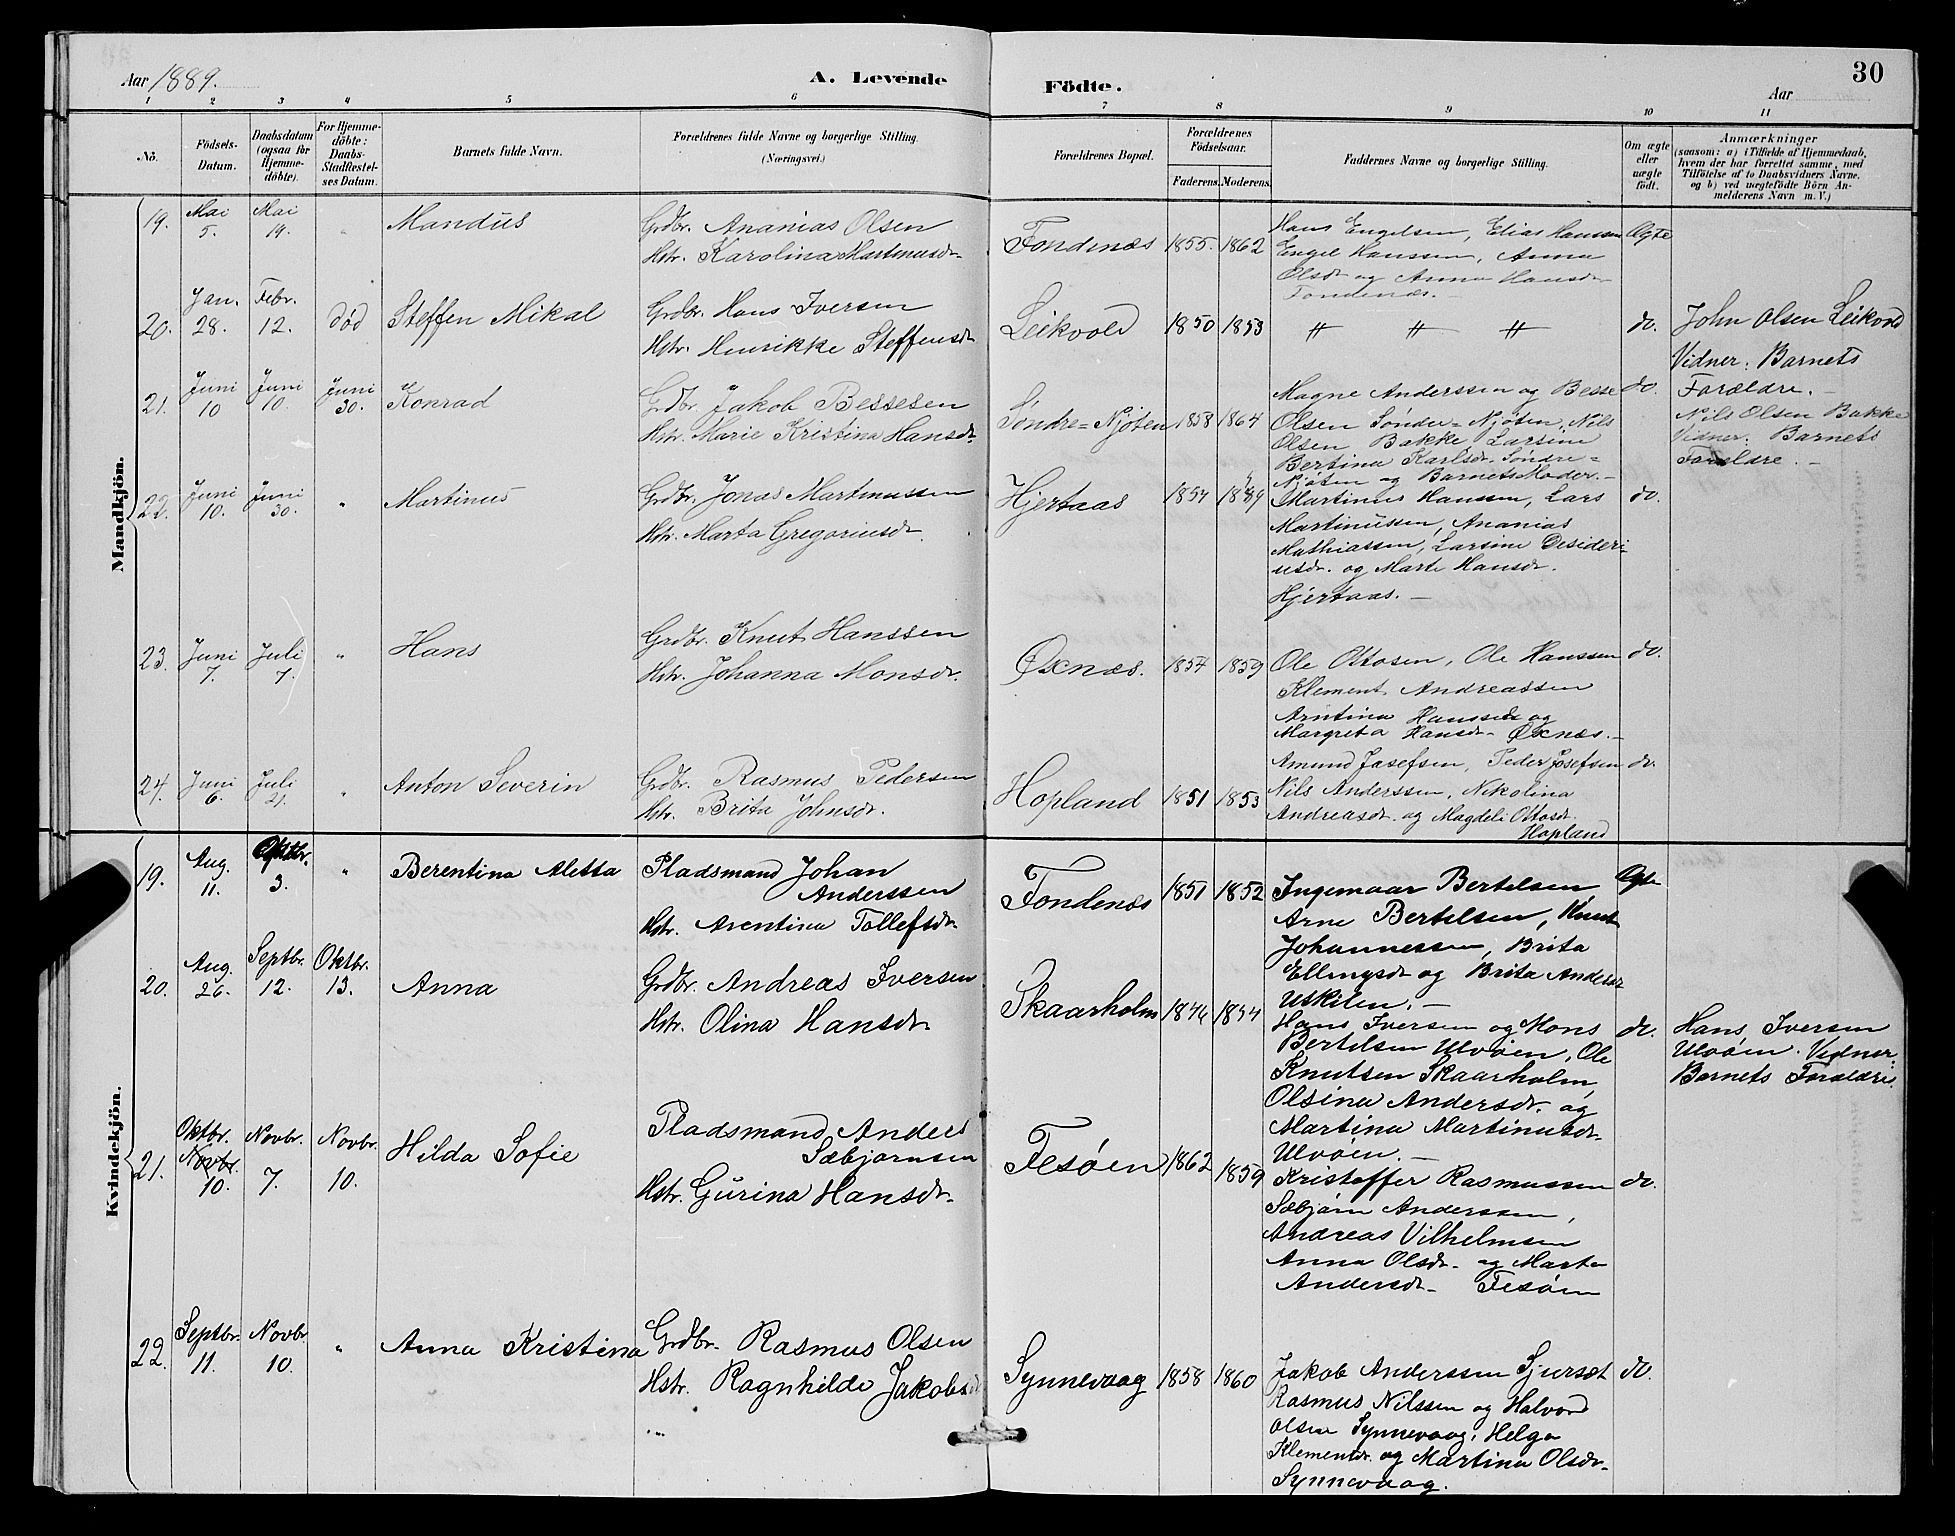 Aar 1889.
A. Levende Födte.
30
Aar
1 2 3 4 5 6 7 8 9 10 11
No.
Födsels-Datum.
Daabsdatum (ogsaa for Hjemme-döbte).
For Hjemme-döbte: Daabs-Stadfæstel-ses Datum.
Barnets fulde Navn.
Forældrenes fulde Navne og borgerlige Stilling.
(Næringsvei.)
Forældrenes Bopæl.
Forældrenes Födselsaar.
Faderens. Moderens.
Faddernes Navne og borgerlige Stilling.
Om ægte eller uægte födt.
Anmærkninger
(saasom: a) i Tilfælde af Hjemmedaab,
hvem der har forrettet samme, med
Tilföielse af to Daabsvidners Navne,
og b) ved uægtefödte Börn An-
melderens Navn m. V.)
Mandkjön.
19. Mai 5. Mai 19. " Mandus
Grdbr. Ananias Olsen
Hstr. Karolina Martinusdr.
Fondenæs 1855. 1862
Hans Engelsen, Elias Hanssen
Engel Hanssen, Anna
Olsdr og Anna Hansdr
Fondenæs.
Ægte
20. Jan. 28. Febr. 12. død Steffen Mikal
Grdbr. Hans Iversen
Hstr. Henrikke Steffensdr
Leikvold 1850 1853
" " "
do.
John Olsen Leikvold
Vidner: Barnets
Forældre.
21. Juni 10 Juni 10. Juni 30. Konrad
Grdbr. Jakob Bessesen
Hstr. Marie Kristina Hansdr.
Søndre=Njøten 1858 1864
Magne Anderssen og Besse
Olsen Sønder=Njøten, Nils
Olsen Bakke, Larsine
Bertina Karlsdr. Søndre=
Njøten og Barnets Moder.
do.
Nils Olsen Bakke
Vidner: Barnets
Forældre.
22. Juni 10. Juni 30. " Martinus
Grdbr. Jonas Martinussen
Hstr. Marta Gregoriusdr.
Hjertaas
Martinus Hanssen, Lars
Martinussen, Ananias
Mathiassen, Larsine Desideri-
usdr. og Marte Hansdr.
Hjertaas.
do.
23. Juni 7. Juli 7. " Hans
Grdbr. Knut Hanssen
Hstr. Johanna Monsdr.
Øxnæs. 1857 1859
Ole Ottosen, Ole Hanssen
Klement Andreassen
Arntina
og
Margreta Hansdr. Øxnæs.
do.
24. Juni 6. Juli 21. " Anton Severin
Grdbr. Rasmus Pedersen
Hstr. Brita Johnsdr.
Hopland 1851 1853
Amund Josefsen, Peder Josefsen
Nils Anderssen, Nikolina
Andreasdr. og Magdeli Ottosdr.
Hopland
do.
Kvindekjön.
19. Aug. 11. Oktbr. 3. " Berentina Aletta
Pladsmand Johan
Anderssen
Hstr. Arentina Tollefsdr.
Fondenæs 1851 1852
Ingemaar Bertelsen
Arne Bertelsen, Knut
Johannessen, Brita
Ellingsdr og Brita Andersdr
Utkilen.
Ægte
20. Aug. 26. Septbr. 12. Oktbr. 13. Anna
Grdbr. Andreas Iversen
Hstr. Olina Hansdr.
Skaarholm 1846 1854
Hans Iversen og Mons
Bertelsen Ulvøen, Ole
Knutsen Skaarholm,
Olsina Andersdr. og
Martina Martinusdr.
Ulvøen.
do.
Hans Iversen
Ulvøen. Vidner:
Barnets Forældre.
21. Oktbr. Novbr. 10. Novbr. 7. Novbr. 10. Hilda Sofie
Pladsmand Anders
Sæbjørnsen
Hstr. Gurina Hansdr.
Fesøen 1862 1859
Kristoffer Rasmussen
Sæbjørn Anderssen,
Andreas Vilhelmsen
Anna Olsdr. og Marta
Andersdr. Fesøen
do.
22. Septbr. 11. Novbr 10. " Anna Kristina
Grdbr. Rasmus Olsen
Hstr. Ragnhilde Jakobsdr
Synnevaag 1858 1860
Jakob Anderssen Sjursæt
Rasmus Nilssen og Halvord
Olsen Synnevaag, Helga
Klementdr. og Martina Olsdr.
Synnevaag.
do.